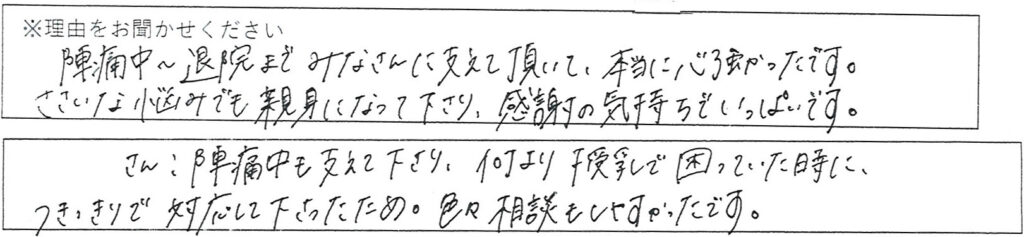 ※理由をお聞かせください
陣痛中～退院まで みなさんに支えて頂いて、本当に心強かったです。
ささいな悩みでも親身になって下さり、感謝の気持ちでいっぱいです。
さん：陣痛中も支えて下さり、何より授乳で困っていた時に、
つきっきりで対応して下さったため。色々相談もしやすかったです。